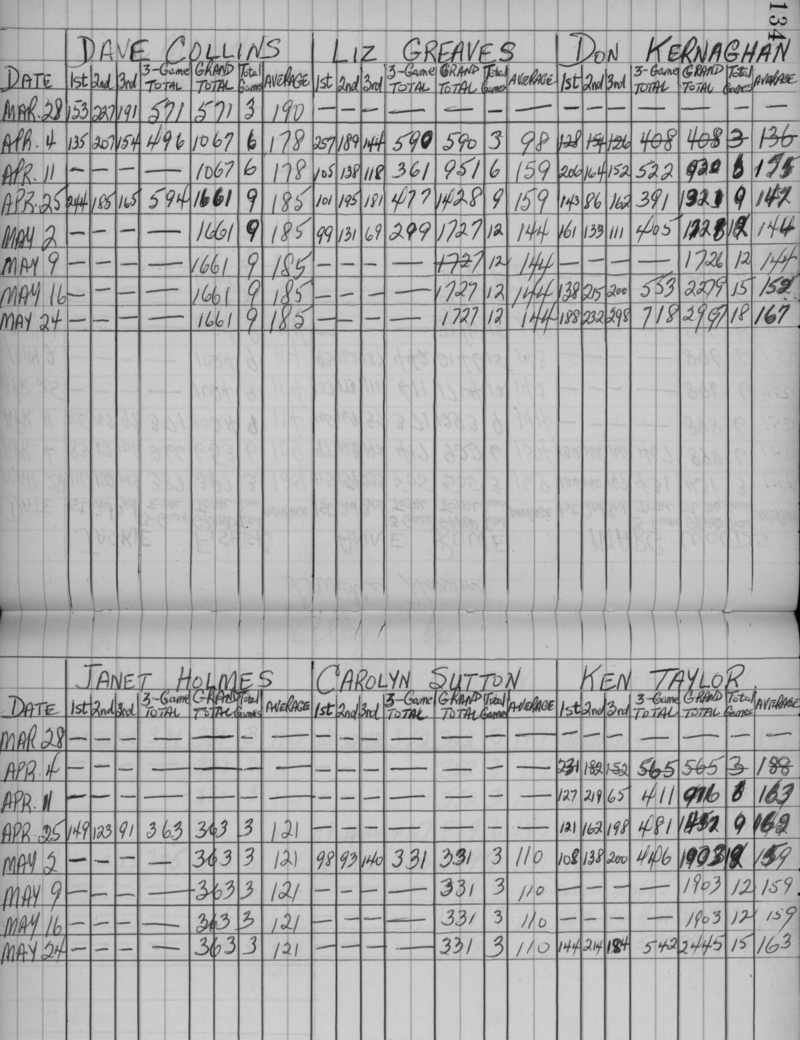 134
DAVE COLLINS LIZ GREAVES DON KERNAGHAN
DATE 1st 2nd 3rd 3-Game TOTAL GRAND TOTAL Total Games AVERAGE 1st 2nd 3rd 3-Game TOTAL GRAND TOTAL Total Games AVERAGE 1st 2nd 3rd 3-Game TOTAL GRAND TOTAL Total Games AVERAGE
MAR. 28 153 227 191 571 571 3 190 — — — — — — — — — — — — — —
APR. 4 135 207 154 496 1067 6 178 257 189 144 590 590 3 98 128 154 126 408 408 3 136
APR. 11 — — — — 1067 6 178 105 138 118 361 951 6 159 206 164 152 522
APR. 25 244 185 165 594 1661 9 185 101 195 181 477 1428 9 159 143 86 162 391 9 147
MAY 2 — — — — 1661 9 185 99 131 69 299 1727 12 144 161 133 111 405 12 144
MAY 9 — — — — 1661 9 185 — — — — 1727 12 144 — — — — 1726 12 144
MAY 16 — — — — 1661 9 185 — — — — 1727 12 144 138 215 200 553 2279 15 152
MAY 24 — — — — 1661 9 185 — — — — 1727 12 144 188 232 298 718 2997 18 167
JANET HOLMES CAROLYN SUTTON KEN TAYLOR
DATE 1st 2nd 3rd 3-Game TOTAL GRAND TOTAL Total Games AVERAGE 1st 2nd 3rd 3-Game TOTAL GRAND TOTAL Total Games AVERAGE 1st 2nd 3rd 3-Game TOTAL GRAND TOTAL Total Games AVERAGE
MAR 28 — — — — — — — — — — — — — — — — — — — — —
APR. 4 — — — — — — — — — — — — — — 231 182 152 565 565 3 188
APR. 11 — — — — — — — — — — — — — — 127 219 65 411 163
APR. 25 149 123 91 363 363 3 121 — — — — — — — 121 162 198 481 9 162
MAY 2 — — — — 363 3 121 98 93 140 331 331 3 110 108 138 200 446 1903 12 159
MAY 9 — — — — 363 3 121 — — — — 331 3 110 — — — — 1903 12 159
MAY 16 — — — — 363 3 121 — — — — 331 3 110 — — — — 1903 12 159
MAY 24 — — — — 363 3 121 — — — — 331 3 110 144 214 184 542 2445 15 163